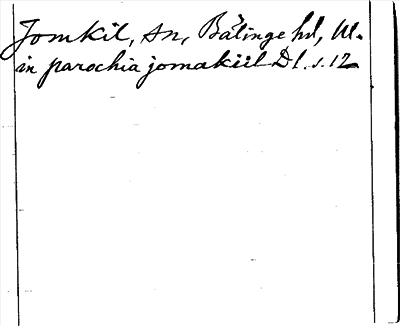 Jomkil, sn, Bälinge hd, Ul.
in parochia jomakiil Dl. s. 12